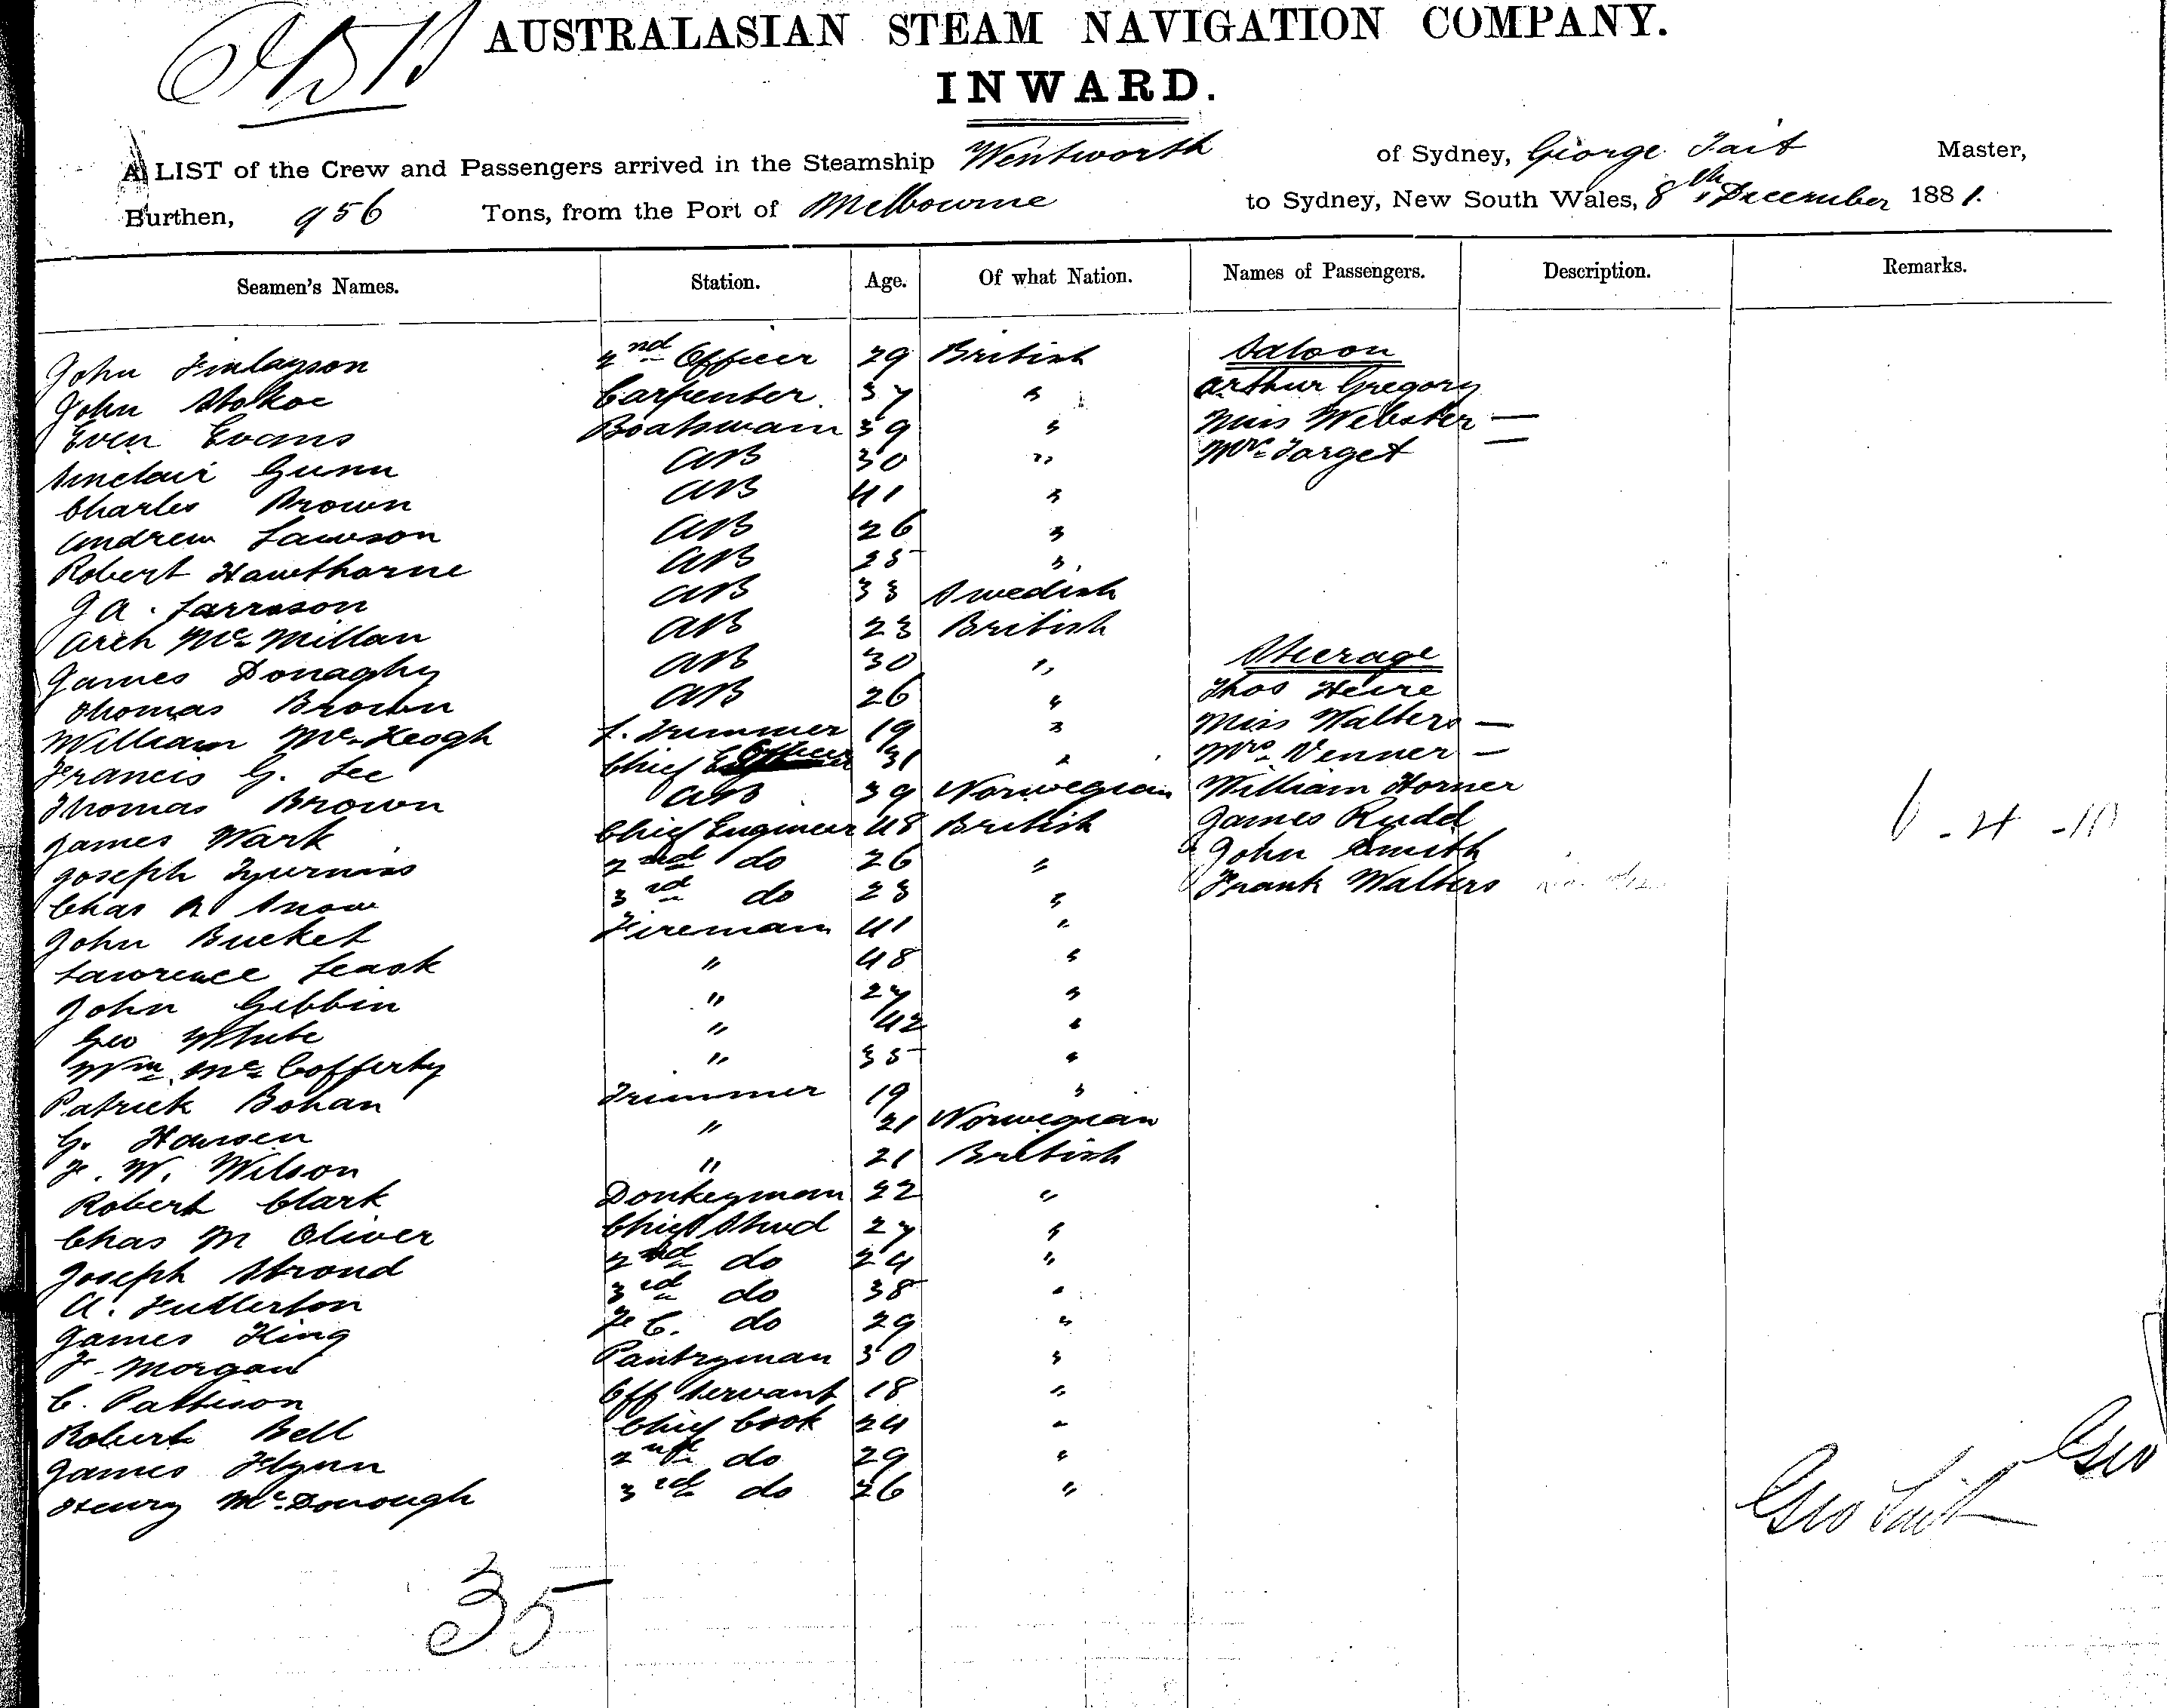 AUSTRALASIAN STEAM NAVIGATION COMPANY.
INWARD.
A LIST of the Crew and Passengers arrived in the Steamship Wentworth of Sydney, George Tait Master,
Burthen, 956 Tons, from the Port of Melbourne to Sydney, New South Wales, 8th December 1881.
Seamen's Names. Station. Age. Of what Nation. Names of Passengers. Description. Remarks.
John Finlayson 2nd Officer 29 British Saloon
John Stokoe Carpenter. 37 " Arthur Gregory
Even Evans Boatswain 39 " Miss Webster —
Sinclair Gunn AB 30 " Mr Target —
Charles Brown AB 41 "
Andrew Lawson AB 26 "
Robert Hawthorne AB 25 "
J A. Larrsson AB 33 Swedish
Arch McMillan AB 23 British
James Donaghy AB 30 " Steerage
Thomas Brown AB 26 " Thos
William McKeogh L. Trimmer 19 " Miss Walters —
Francis G. Lee Chief Officer 31 " Mrs Venner —
Thomas Brown AB 39 Norwegian William Horner
James Wark Chief Engineer 48 British James Rudd
Joseph 2nd do 26 " John Smith
Chas R Snow 3rd do 23 " Frank Walters
John Bucket Fireman 41 "
Lawrence Leask " 48 "
John Gibbin " 27 "
Geo White " 42 "
Wm McCofferty " 35 "
Patrick Bohan Trimmer 19 "
G. Hansen " 21 Norwegian
F. W. Wilson " 21 British
Robert Clark Donkeyman 22 "
Chas M Oliver Chief Stwd 27 "
Joseph Stroud 2nd do 24 "
A. Fullerton 3rd do 38 "
James King F C. do 29 "
F. Morgan Pantryman 30 "
C. Pattison Off Servant 18 "
Robert Bell Chief Cook 24 "
James Flynn 2nd do 29 "
Henry McDonough 3rd do 26 "
Geo
Geo Tait
35